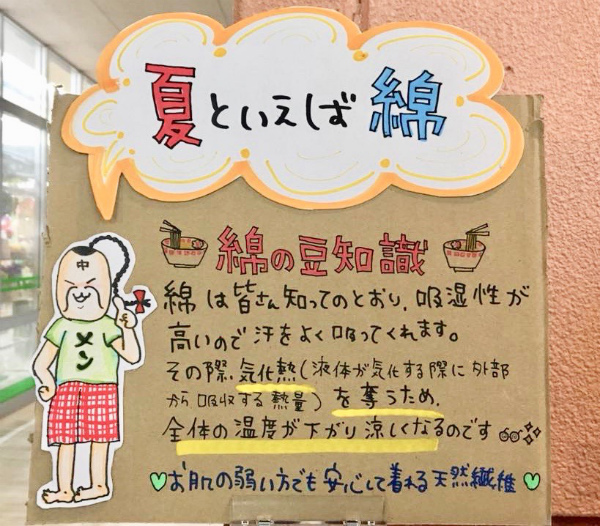 夏といえば綿
綿の豆知識
綿は皆さん知ってのとおり、吸湿性が
高いので汗をよく吸ってくれます。
その際、気化熱(液体が気化する際に外部
から吸収する熱量)を奪うため、
全体の温度が下がり涼しくなるのです
お肌の弱い方でも安心して着れる天然繊維
中
メン